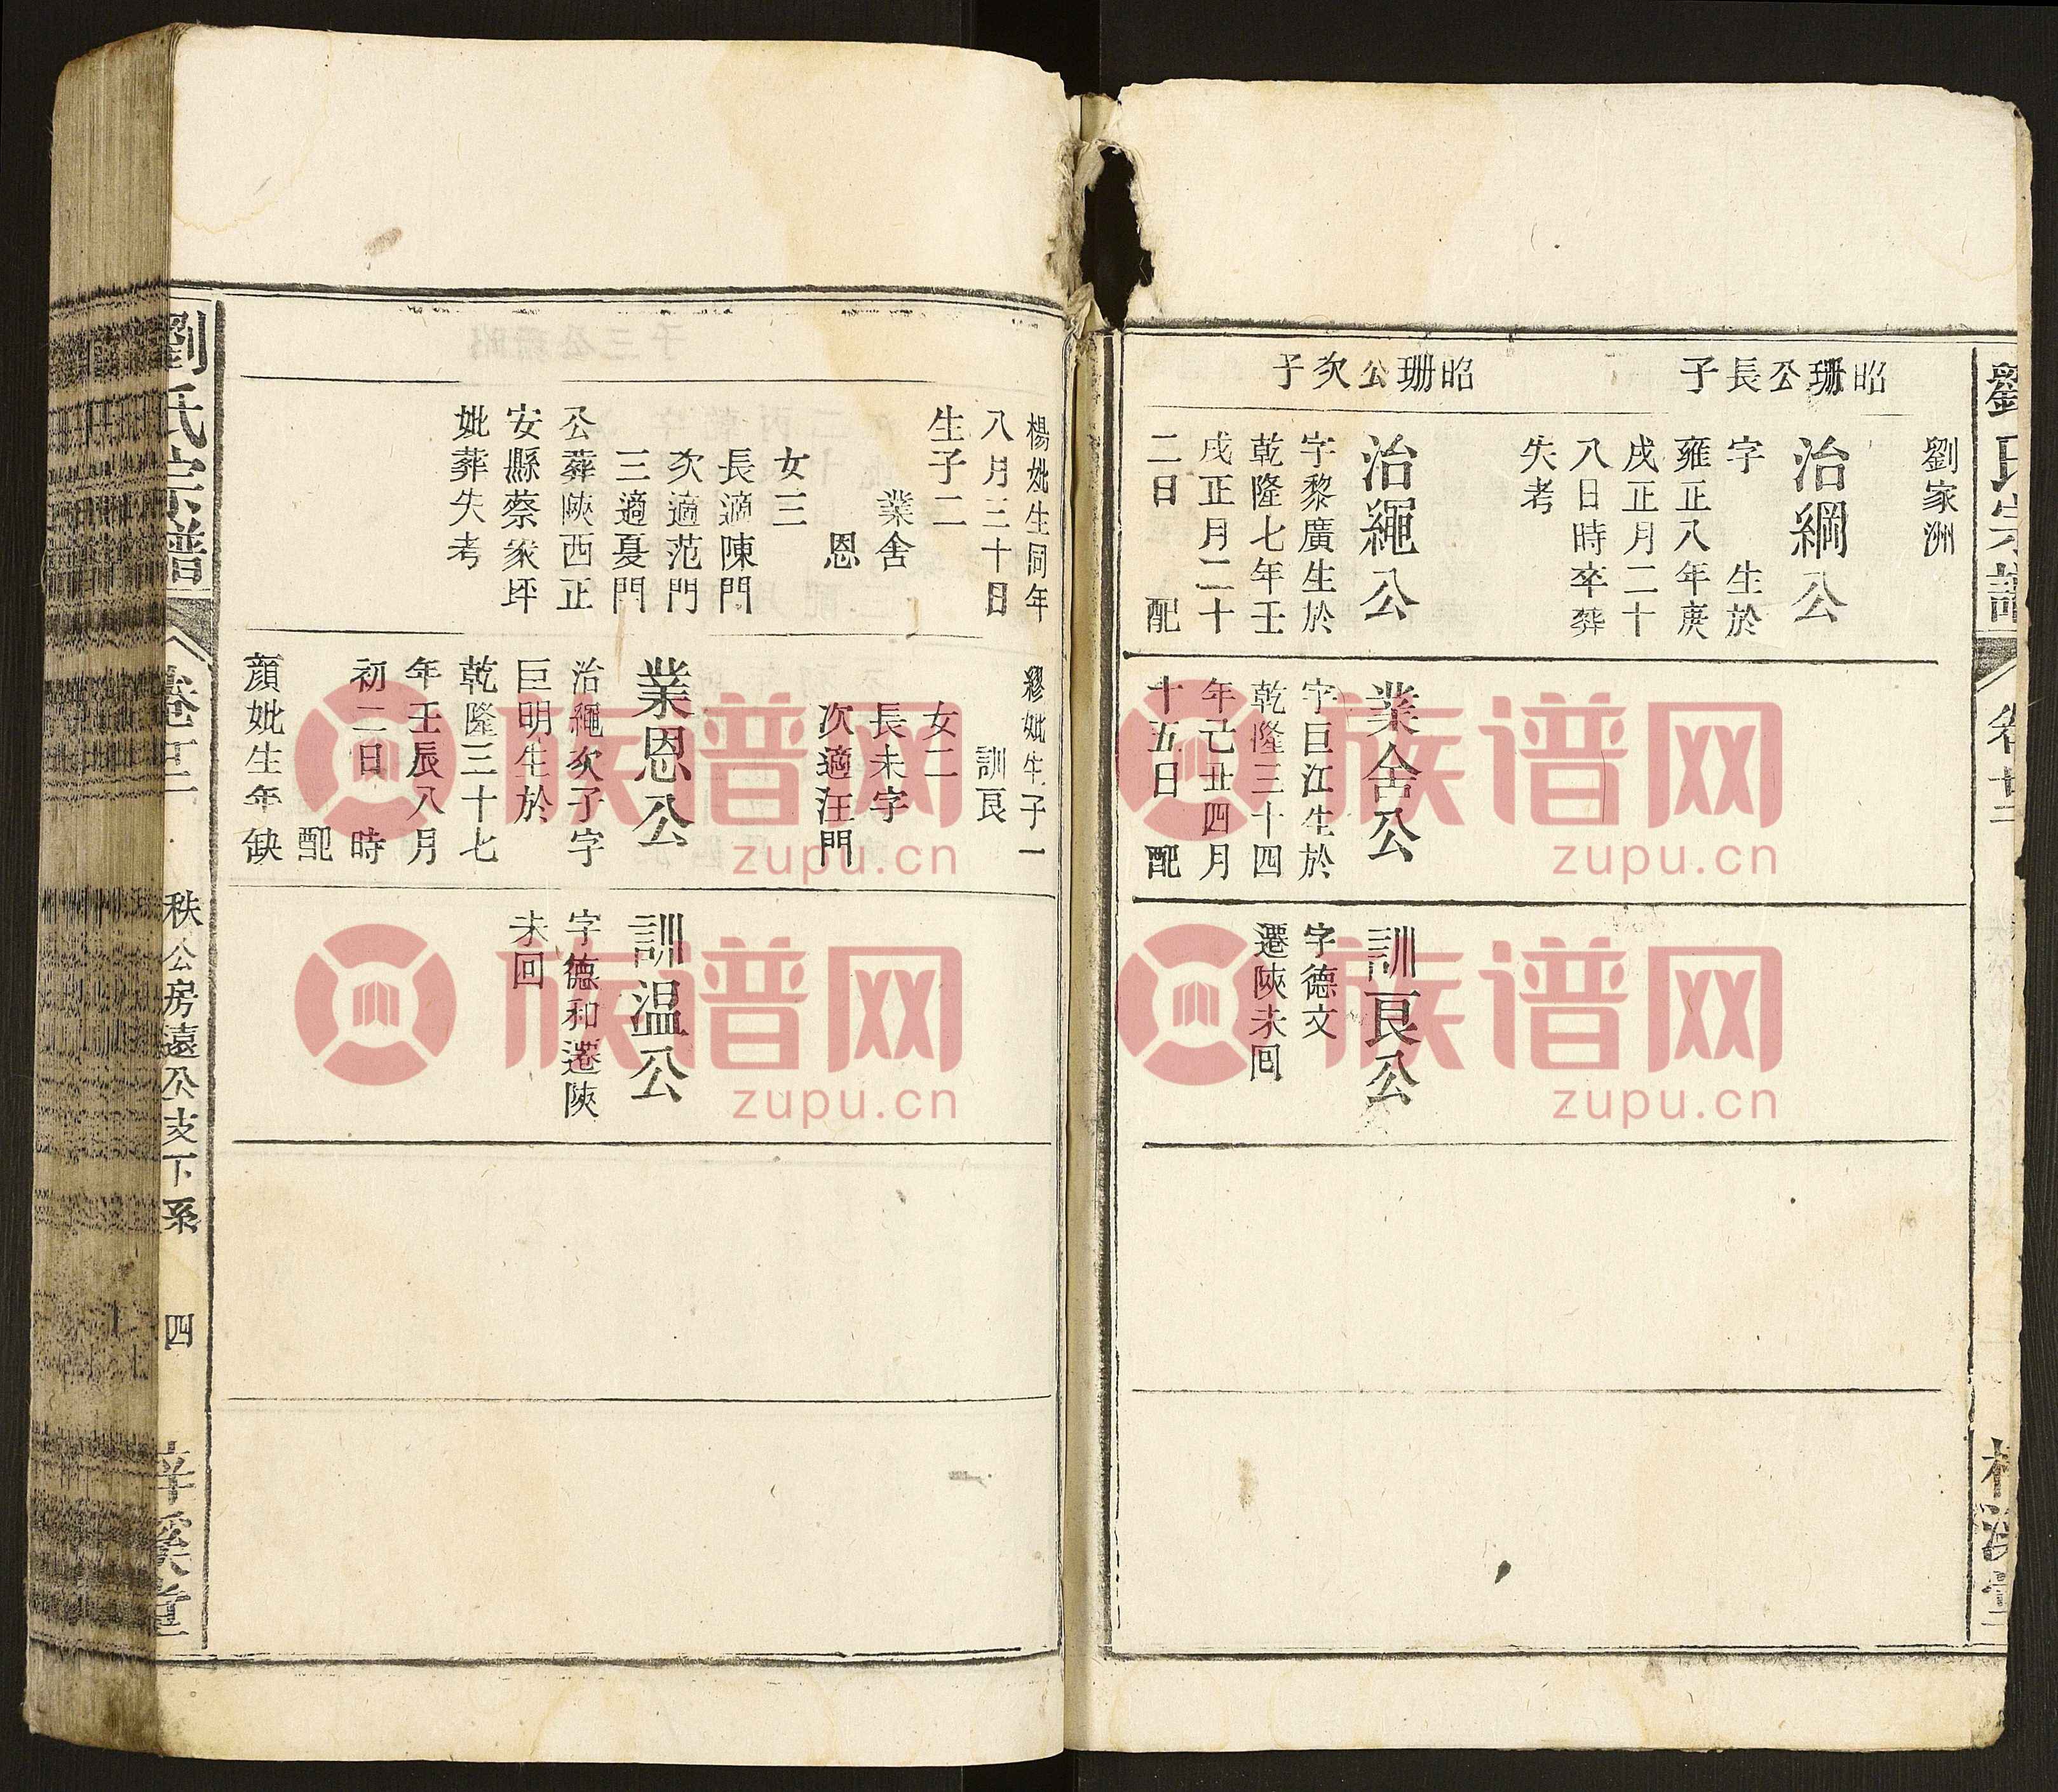 劉氏宗譜
卷廿二
昭珊公長子
昭珊公次子
劉家洲
治綱公
字　生於
雍正八年庚
戌正月二十
八日時卒葬
失考
治繩公
字黎廣生於
乾隆七年壬
戌正月二十
二日　配
業舍公
字巨江生於
乾隆三十四
年己丑四月
十五日　配
訓艮公
字德文
遷陝未回
楊妣生同年
八月三十日
生子二
業舍
恩
女三
長適陳門
次適范門
三適夏門
公葬陝西正
安縣蔡家坪
妣葬失考
繆妣生子一
訓艮
女二
長未字
次適汪門
業恩公
治繩次子字
巨明生於
乾隆三十七
年壬辰八月
初二日　時
配
顏妣生年缺
訓温公
字德和遷陝
未回
劉氏宗譜
秩公房遠公支下系
四
族谱网
zupu.cn
族谱网
zupu.cn
族谱网
zupu.cn
族谱网
zupu.cn